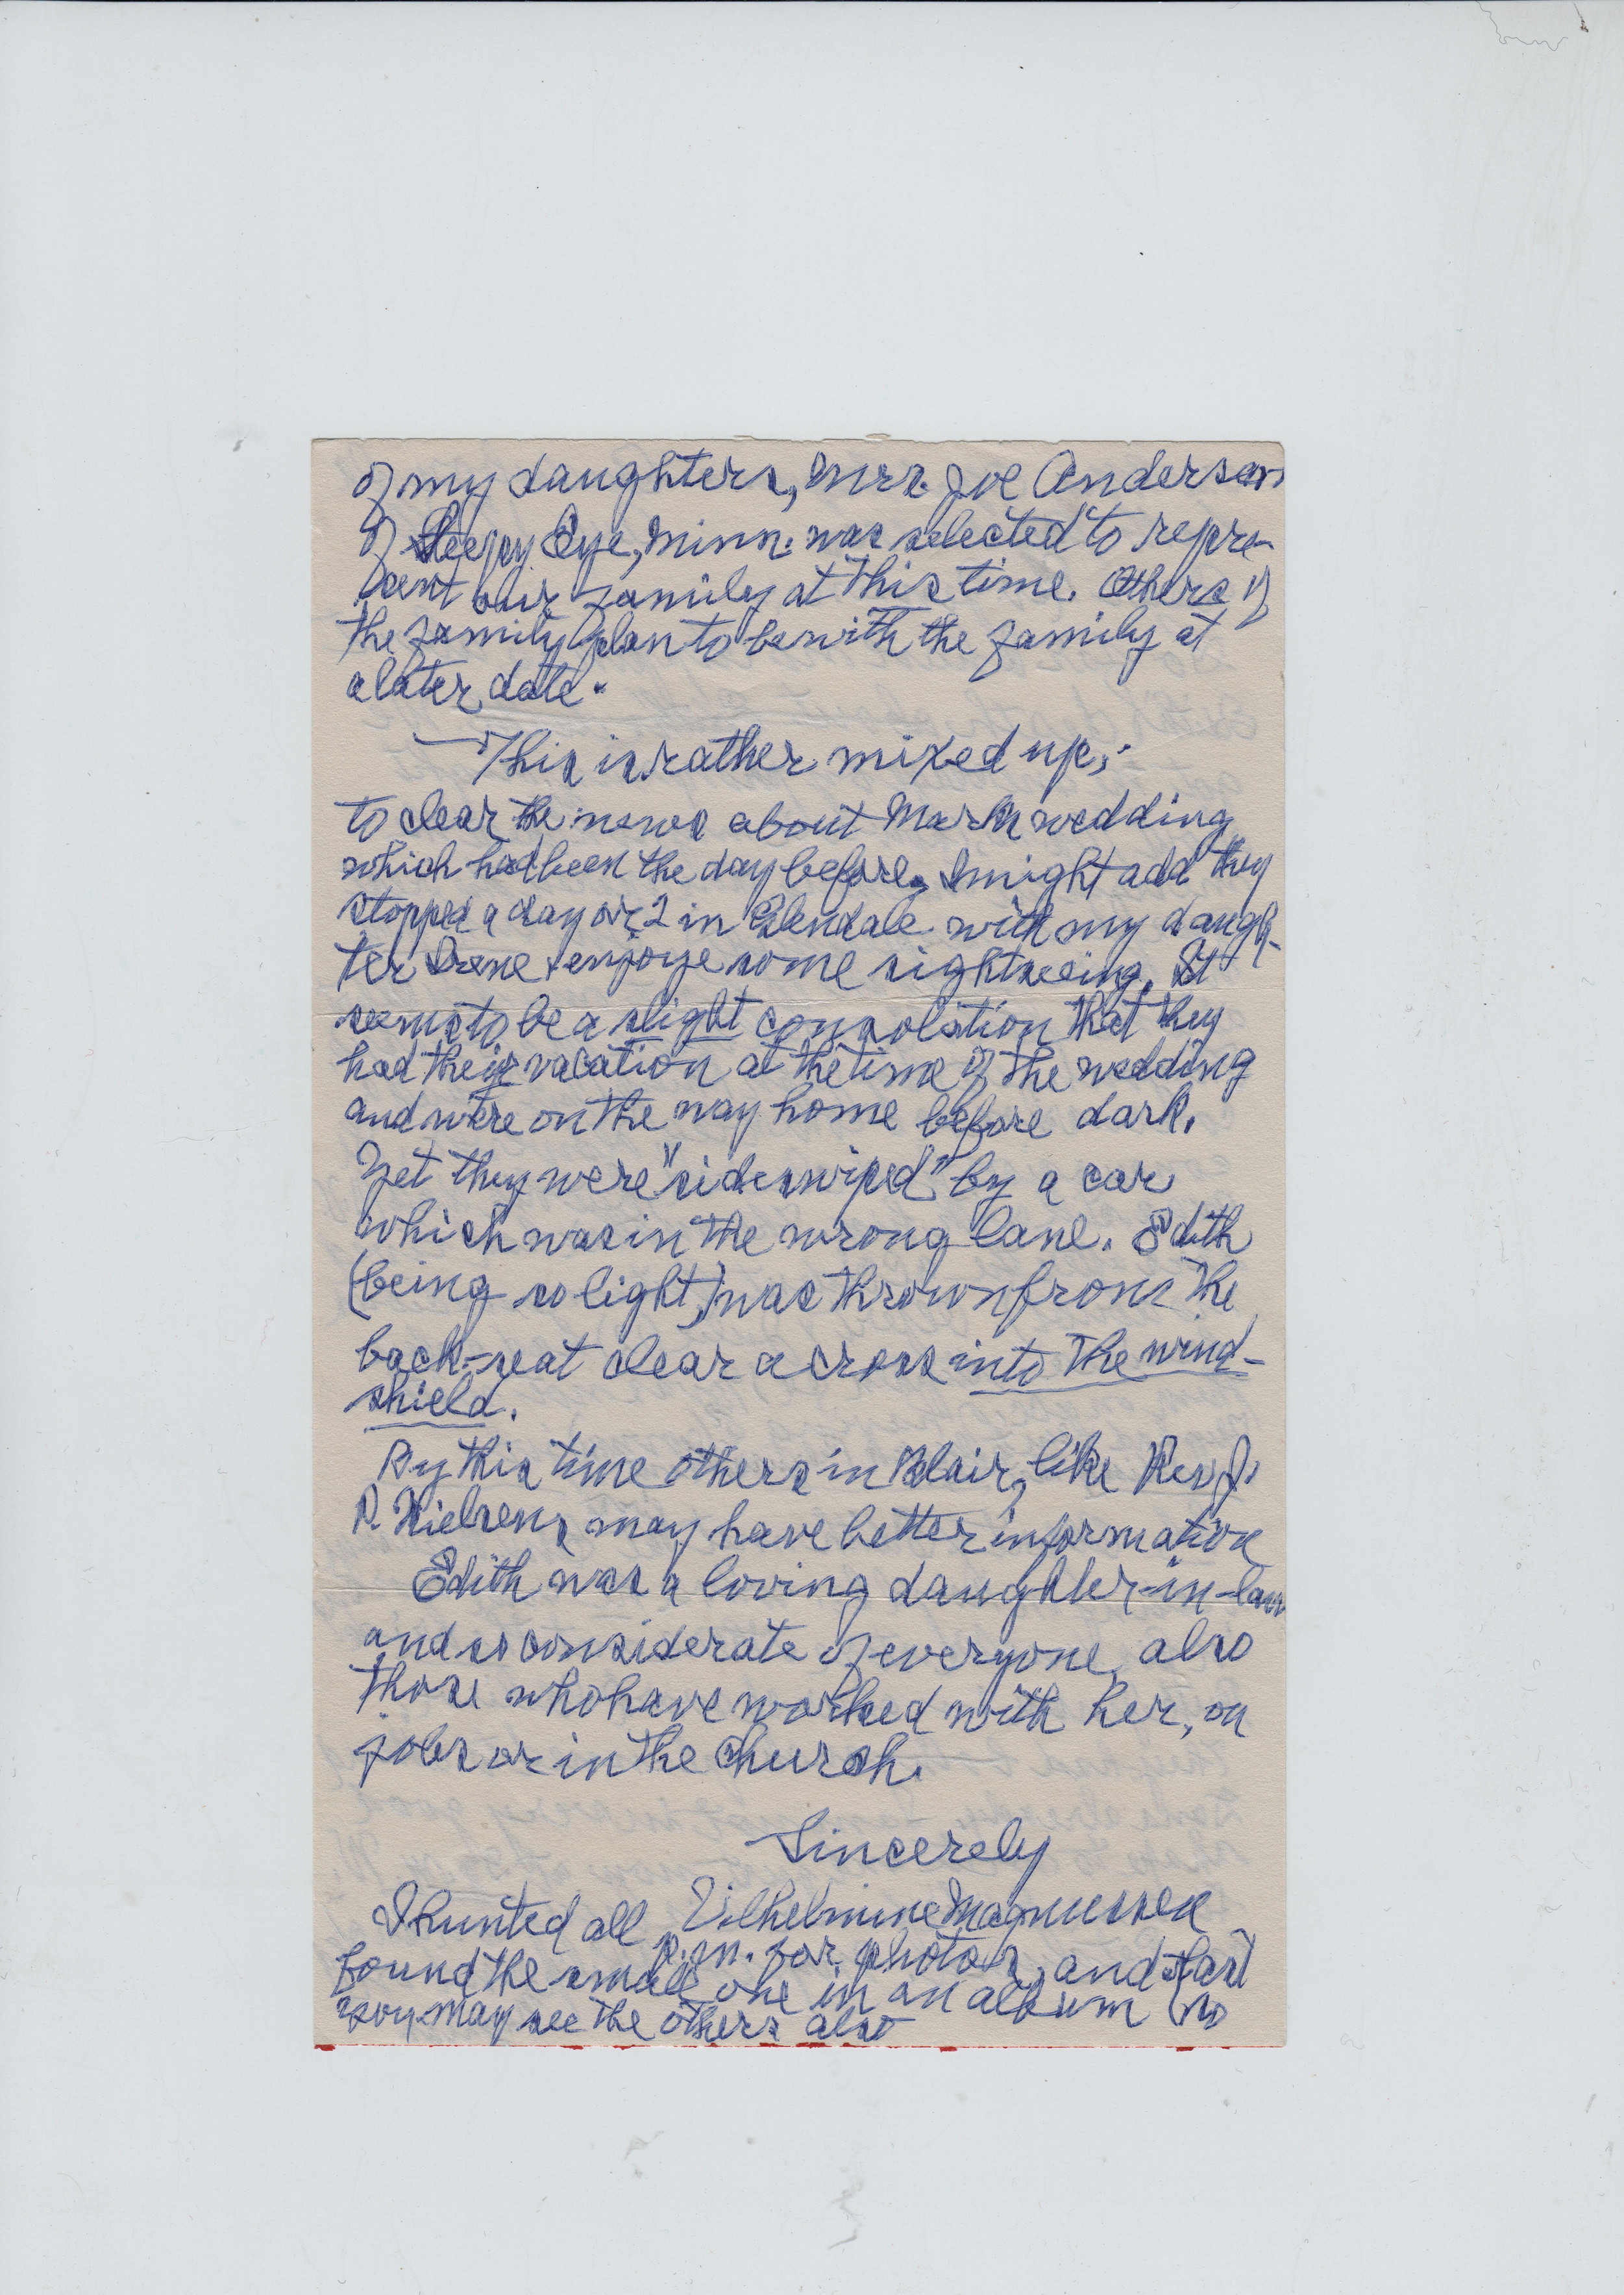 of my daughters, Mrs. Joe Anderson
of Sleepy Eye, Minn. was selected to repre-
sent our family at this time. Others of
the family plan to be with the family at
a later date.
— This is rather mixed up,
to clear the news about Mark wedding
which had been the day before, I might add they
stopped a day or 2 in Glendale with my daugh-
ter Irene & enjoye some sightseeing. It
seems to be a slight consolation that they
had their vacation at the time of the wedding
and were on the way home before dark.
Yet they were "sideswiped" by a car
which was in the wrong lane. Edith
(being so light,) was thrown from the
back-seat clear across into the wind-
shield.
By this time others in Blair, like Rev J.
P. Nielsens may have better information
Edith was a loving daughter-in-law
and so considerate of everyone, also
those who have worked with her, on
jobs or in the church.
Sincerely
Vilhelmine Magnussen
I hunted all
p.m. for photos, and
found the small one in an album (so
you may see the others also